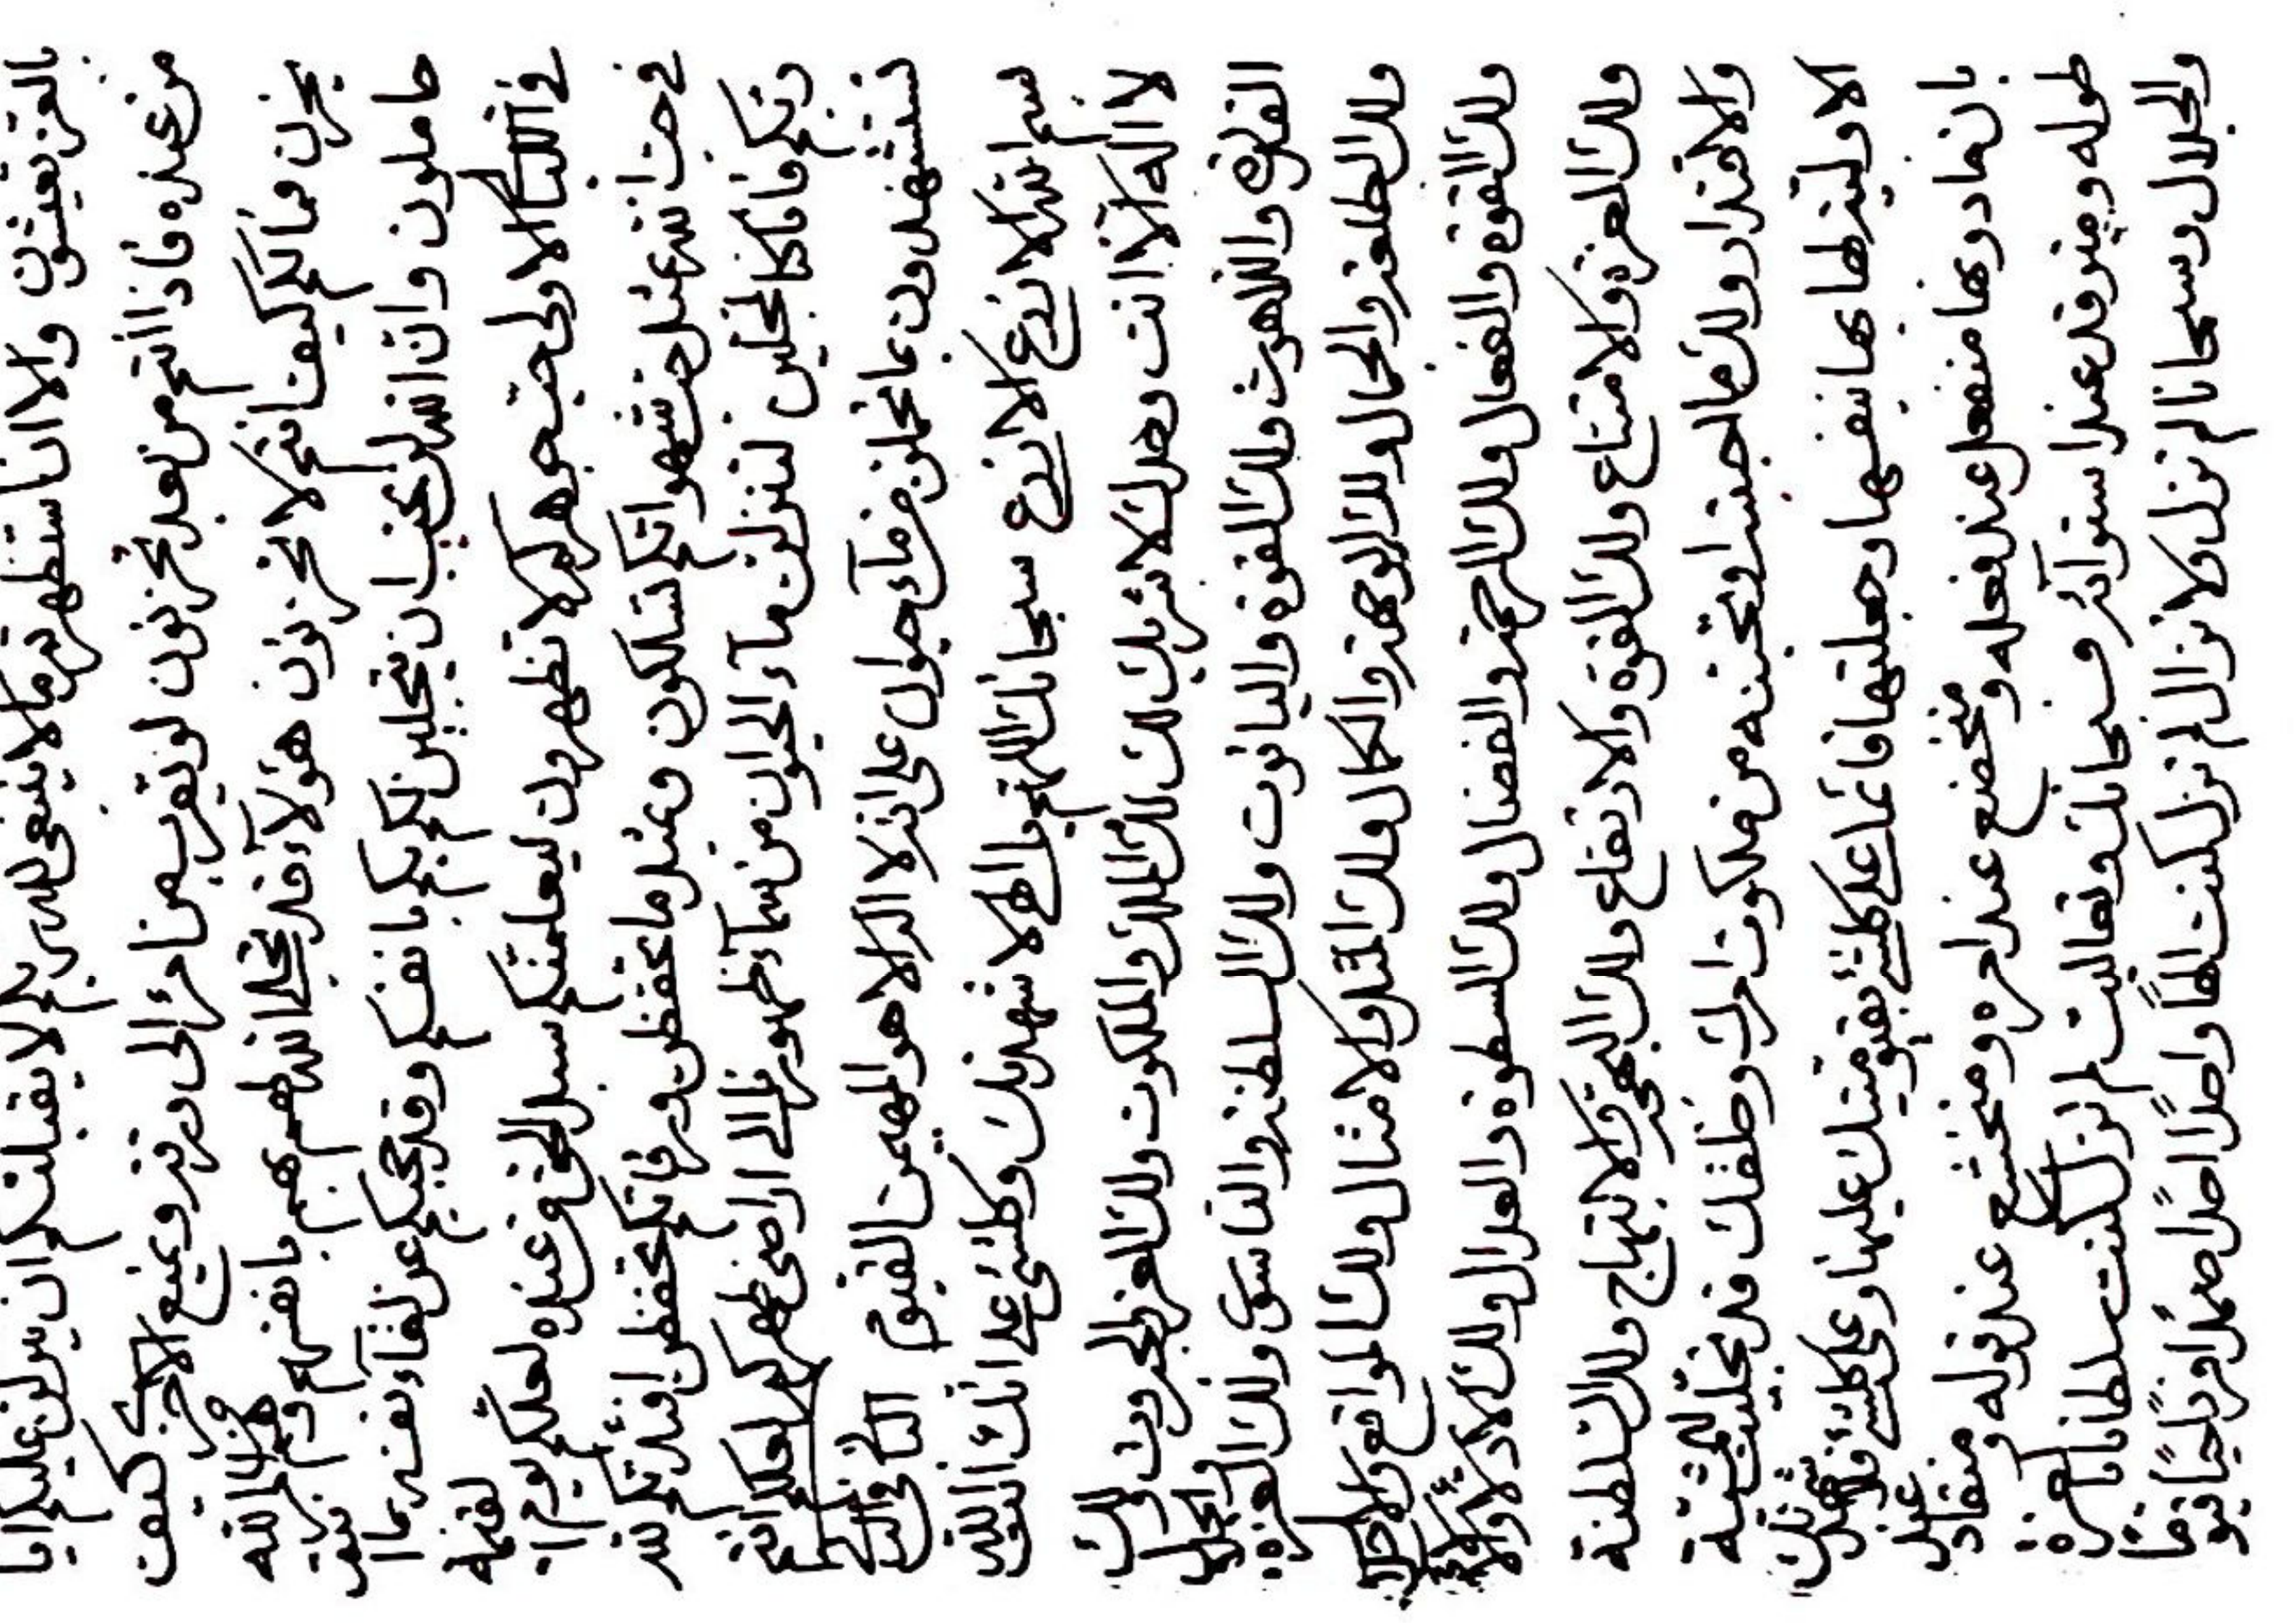 بالعز تعيشون والا انا ستظهرتم ما لا ينبغي لله ربكم لا يقبلنكم وان ينزلن عليكم ايا
من عنده فاذا انتم من بعد تحزنون لو يقرب من نار الى ورقة ويمنع الاخرى كيف
يحزن فما لكم كيف انتم لا تحزنون هؤلاء قد تجلى الله لهم بهم بانفسهم وهم لله
حاملون وان الله لن يحب ان يتجلين لكم بكم بانفسكم وقد حجبكم عن لقاء نفسه بما
في النار الاولى حبه لا تظهرون ليعلمنكم سبل الحق من عنده لعلكم يوم القيمة
في حب الله عمل حب شهواتكم لتسلكون وعند ما تحفظن افئدتكم لله
ربكم فانا كنا لمحبين لننزلن ماء الحيوان من سماء ظهورنا الى اراضي ظهوركم لعلكم انتم
تستشهدون بما نخلق من ماء حيوان على انه لا اله الا هو المهيمن القيوم الثاني والثاني
بسم الله الابدع الابدع سبحانك اللهم يا الهي لاشهدنك وكلشيء على انك انت الله
لا اله الا انت وحدك لا شريك لك لك الملك والملكوت ولك العز والجبروت ولك
القدرة واللاهوت ولك القوة والياقوت ولك السلطنة والناسوت ولك العزة والجلال
ولك الطلعة والجمال ولك الوجهة والكمال ولك المثل والامثال ولك المواقع والاجلال
ولك القوة والفعال ولك الرحمة والفضال ولك السطوة والعدال ولك
ولك العزة والامتناع ولك القوة والارتفاع ولك البهجة والابتهاج ولك السلطنة
والاقتدار ولك ما احببته او تحبنه من ملكوت امرك وخلقك قد تجليت للمشية
الاولية لها بها بنفسها وجعلتها قائما على كلشيء بقيوميتك عليها وعلى كلشيء
بان ما دونها منفعل عند فعله ومتخضع عند امره ومتخشع عند قوله ومنقاد عند
طوله وميزوقد عند استوائه فسبحانك وتعاليت لم تزل كنت سلطانا العزة
والجلال وسبحانا لم تزل ولا تزال لم تزل كنت الها واحدا احدا صمدا فردا حيا قيوما